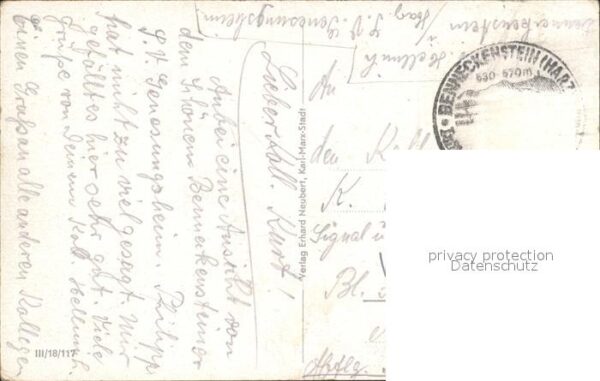 Benneckenstein /
Harz
F.D.G. Genesungsheim.
Hellmich
Lieber Koll. Kurt!
Anbei eine Ansicht von
dem schönen Benneckensteiner
G.D. Genesungsheim. Philipp
hat nicht zu viel gesagt. Mir
gefällt es hier sehr gut. Viele
Grüße von Deinem Koll. Hellmich.
Einen Gruß an alle anderen Kollegen
III/18/117
Verlag Erhard Neubert, Karl-Marx-Stadt
BENNECKENSTEIN (HARZ
530-570m
An
den Koll
K.
Signal u
Bl.
privacy protection
Datenschutz